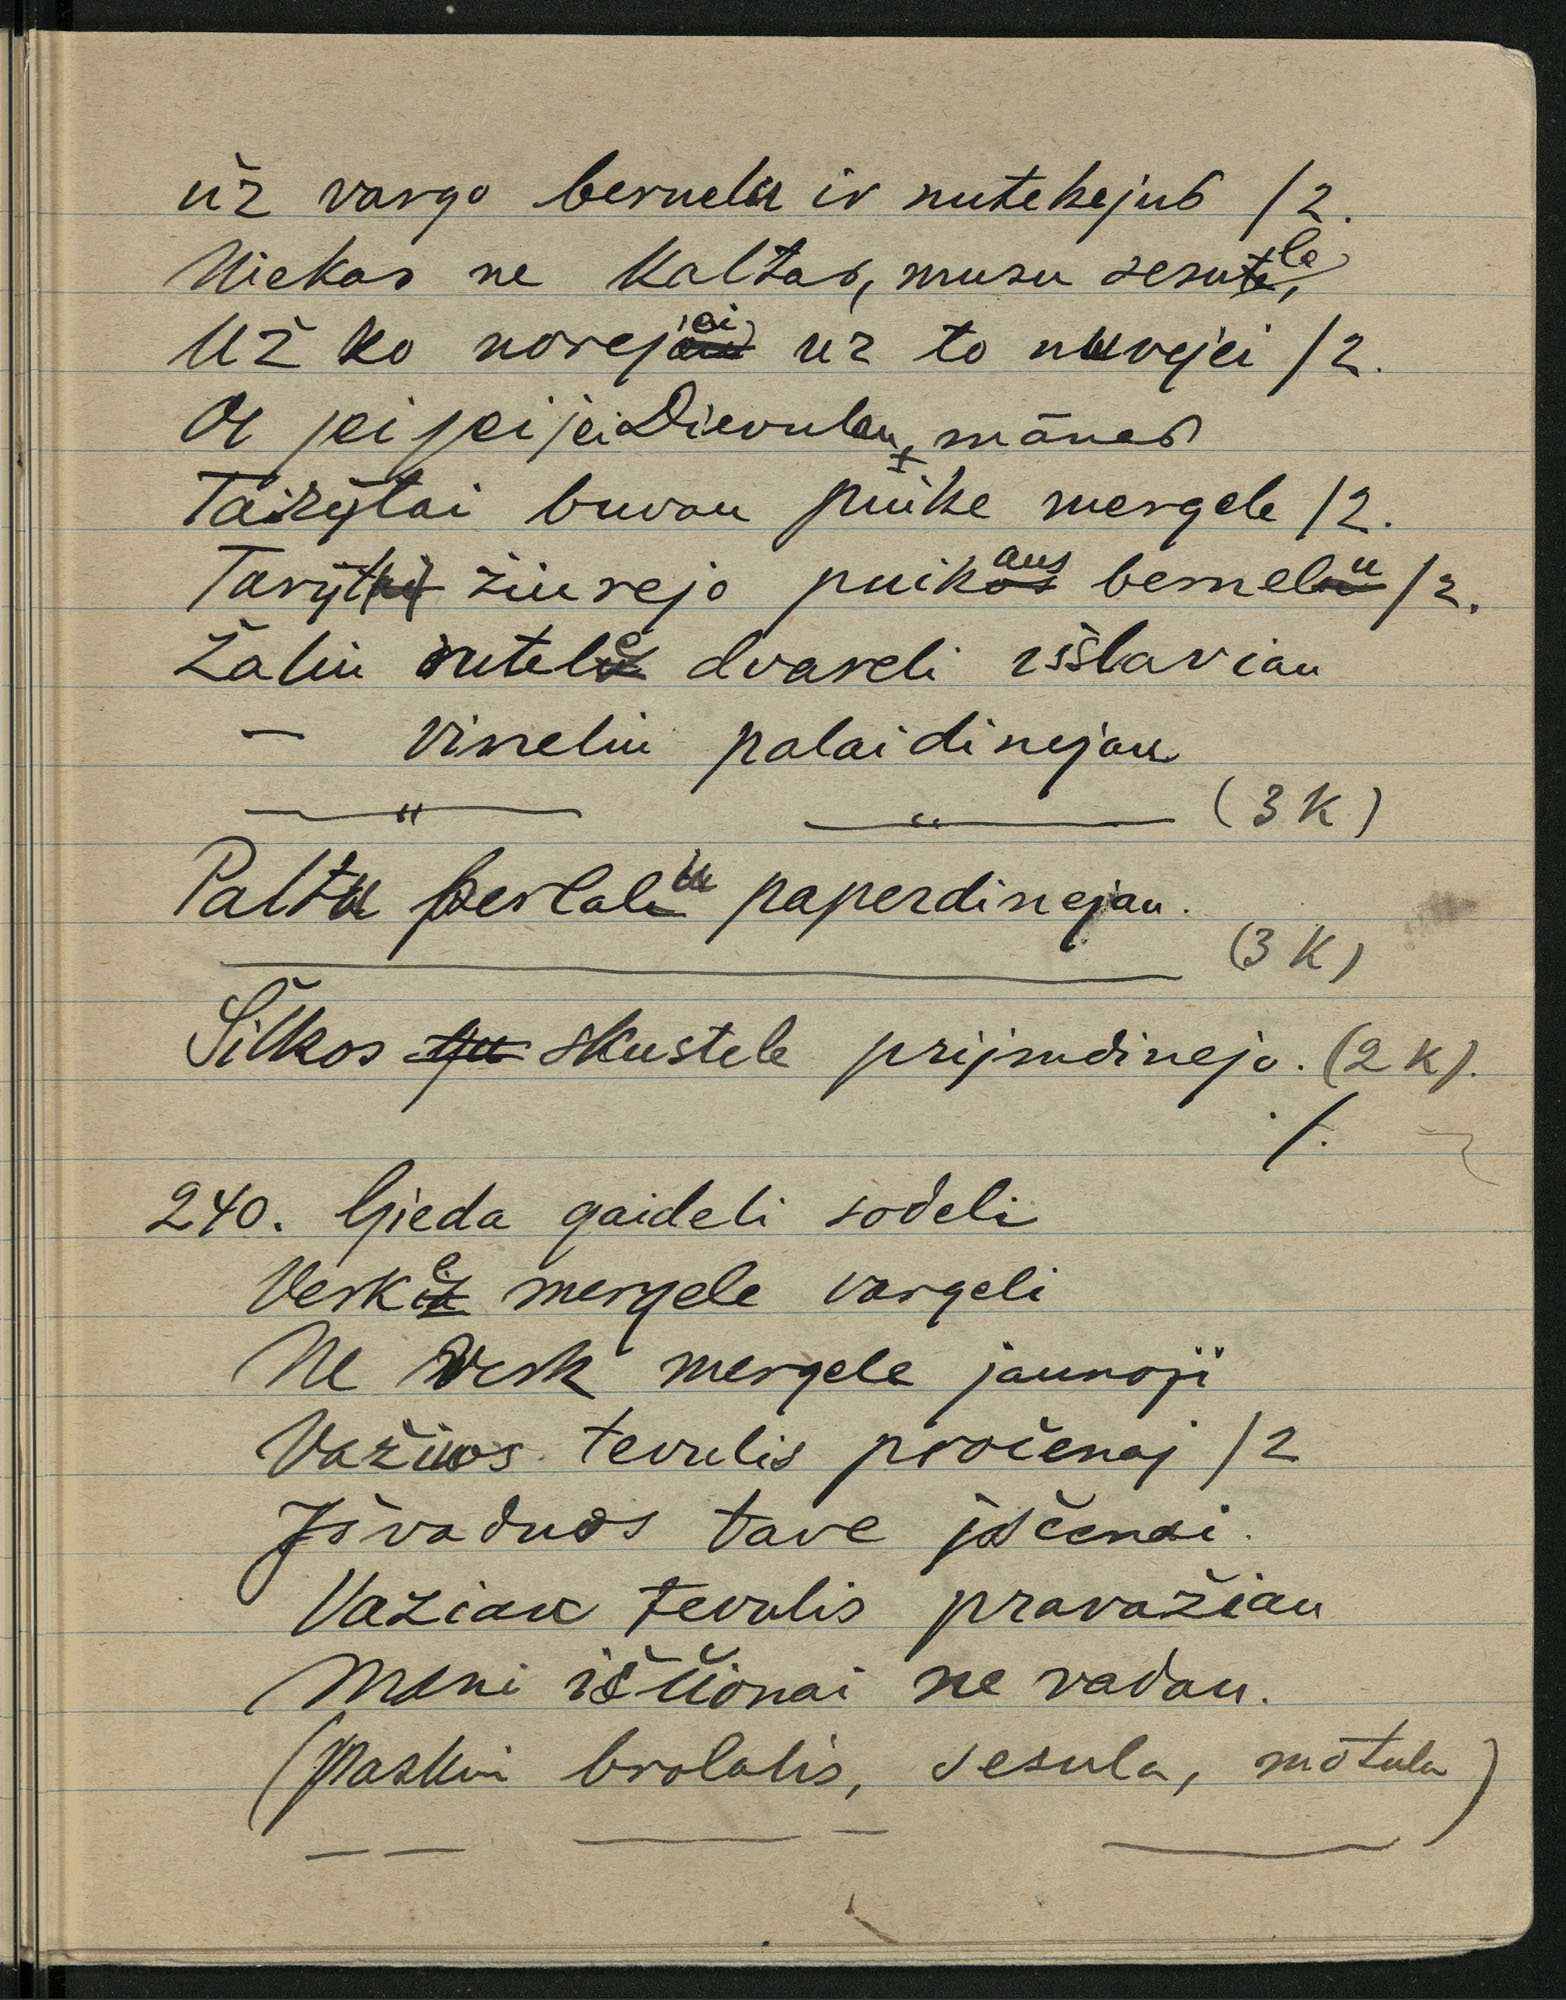 už vargo bernelu ir nutekejus /2.
Niekas ne kaltas, musu sesutela,
Už ko norejei uz to nuvejei /2.
Oi jei jei jei Dievulau, mānas
Tarȳtai buvau puike mergele /2.
Tarȳt žiurejo puikaus bernelu /2.
Žaliu rutele dvareli iššlaviau
— vineliu palaidinejau
— " — — " — (3 K)
Paltu perlaliu paperdinejau.
(3 K)
Šilkos skustele prijudinejo. (2 K).
./.
240. Gieda gaideli sodeli
Verke mergele vargeli
Ne verk mergele jaunoji
Važiuos tevulis pročenaj /2
Išvaduos tave iščenai.
Vaziau tevulis pravažiau
Mani iščionai ne vadau.
(Paskui brolalis, sesula, mōtula)